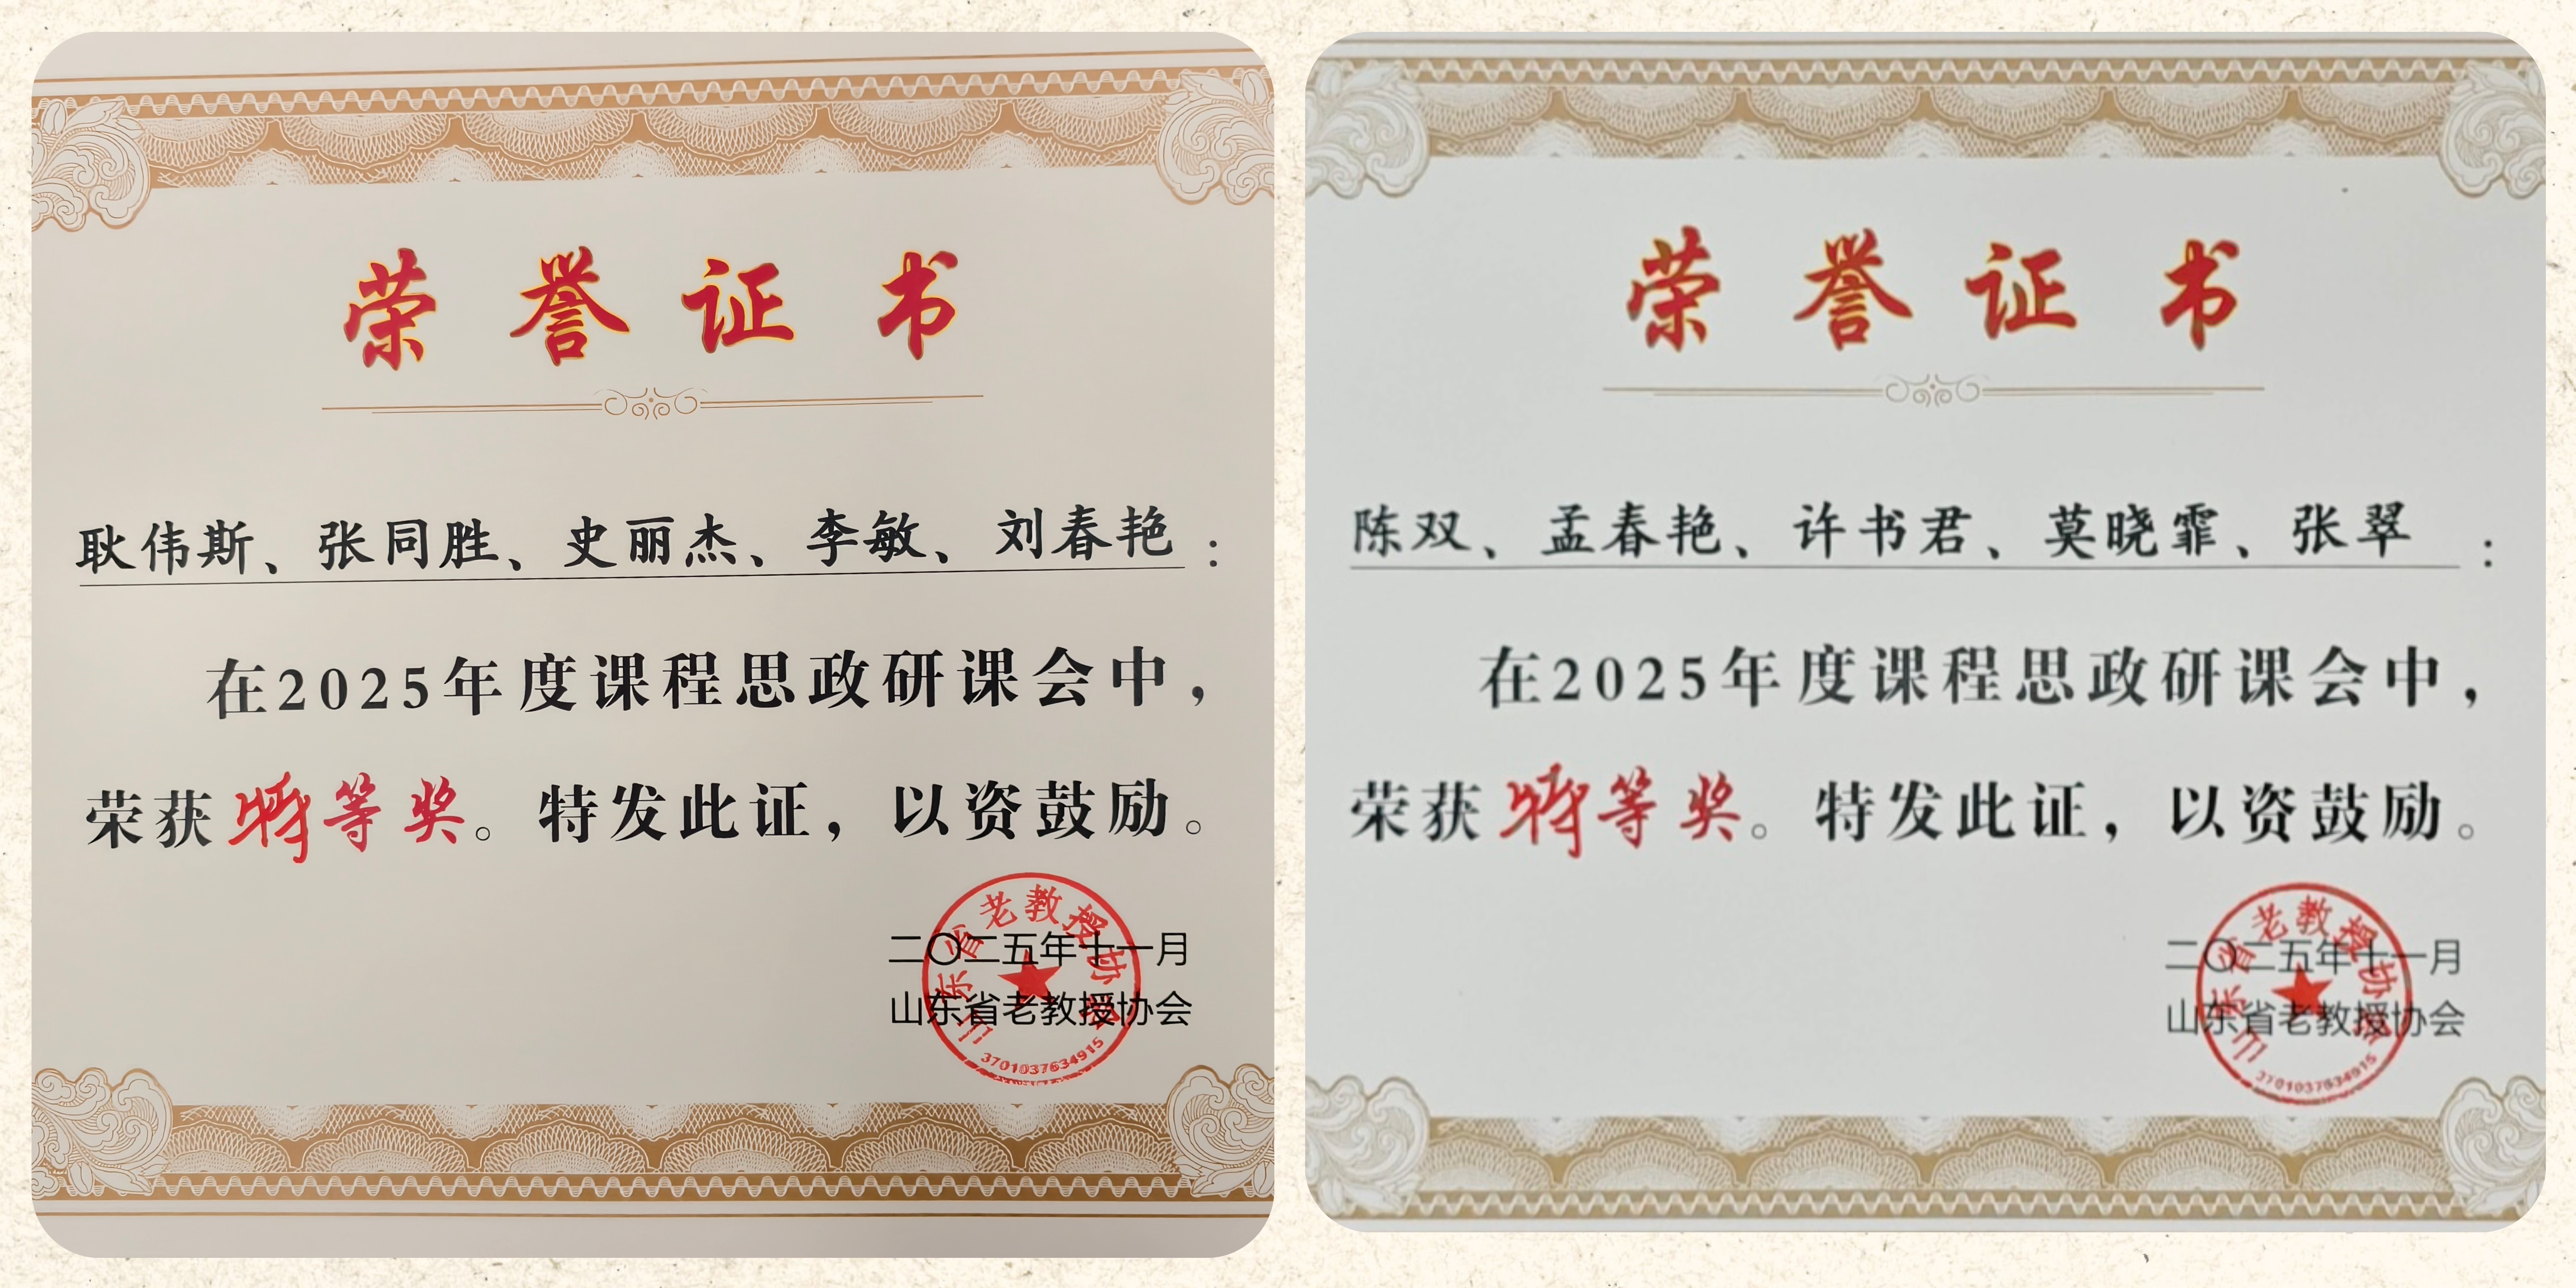 荣誉证书
耿伟斯、张同胜、史丽杰、李敏、刘春艳：
在2025年度课程思政研课会中，
荣获特等奖。特发此证，以资鼓励。
二〇二五年十一月
山东省老教授协会
山东省老教授协会
3701037634915
荣誉证书
陈双、孟春艳、许书君、莫晓霏、张翠：
在2025年度课程思政研课会中，
荣获特等奖。特发此证，以资鼓励。
二〇二五年十一月
山东省老教授协会
山东省老教授协会
3701037634915